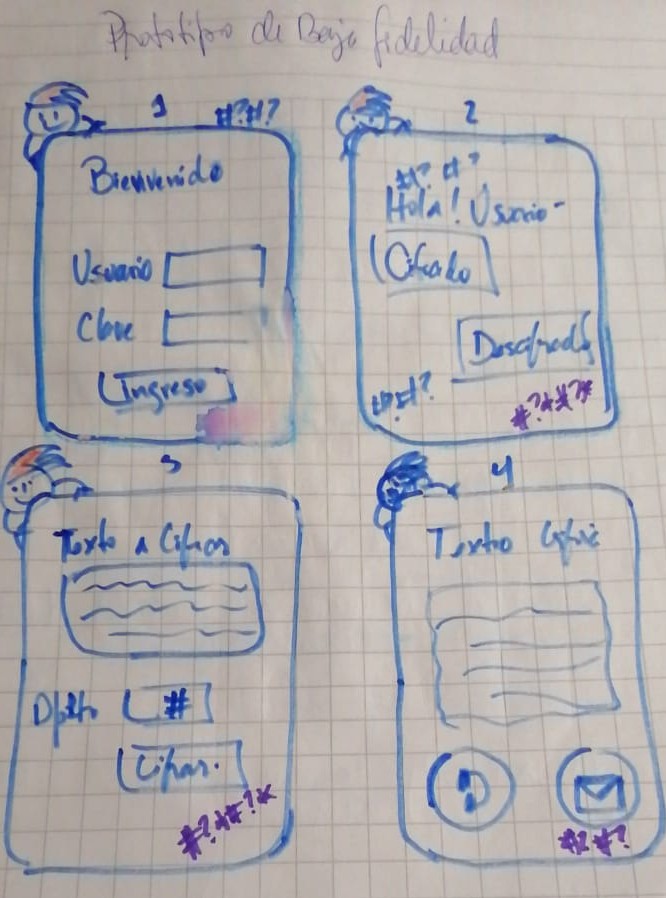 Prototipo de Baja fidelidad
1
#?#?
Bienvenido
Usuario
Clave
Ingreso
2
#? #?
Hola! Usuario-
Cifrado
Descifrado
#?#?
#?*#?*
3
Texto a Cifrar
#
Cifrar.
#?*#?*
4
Texto
#?#?